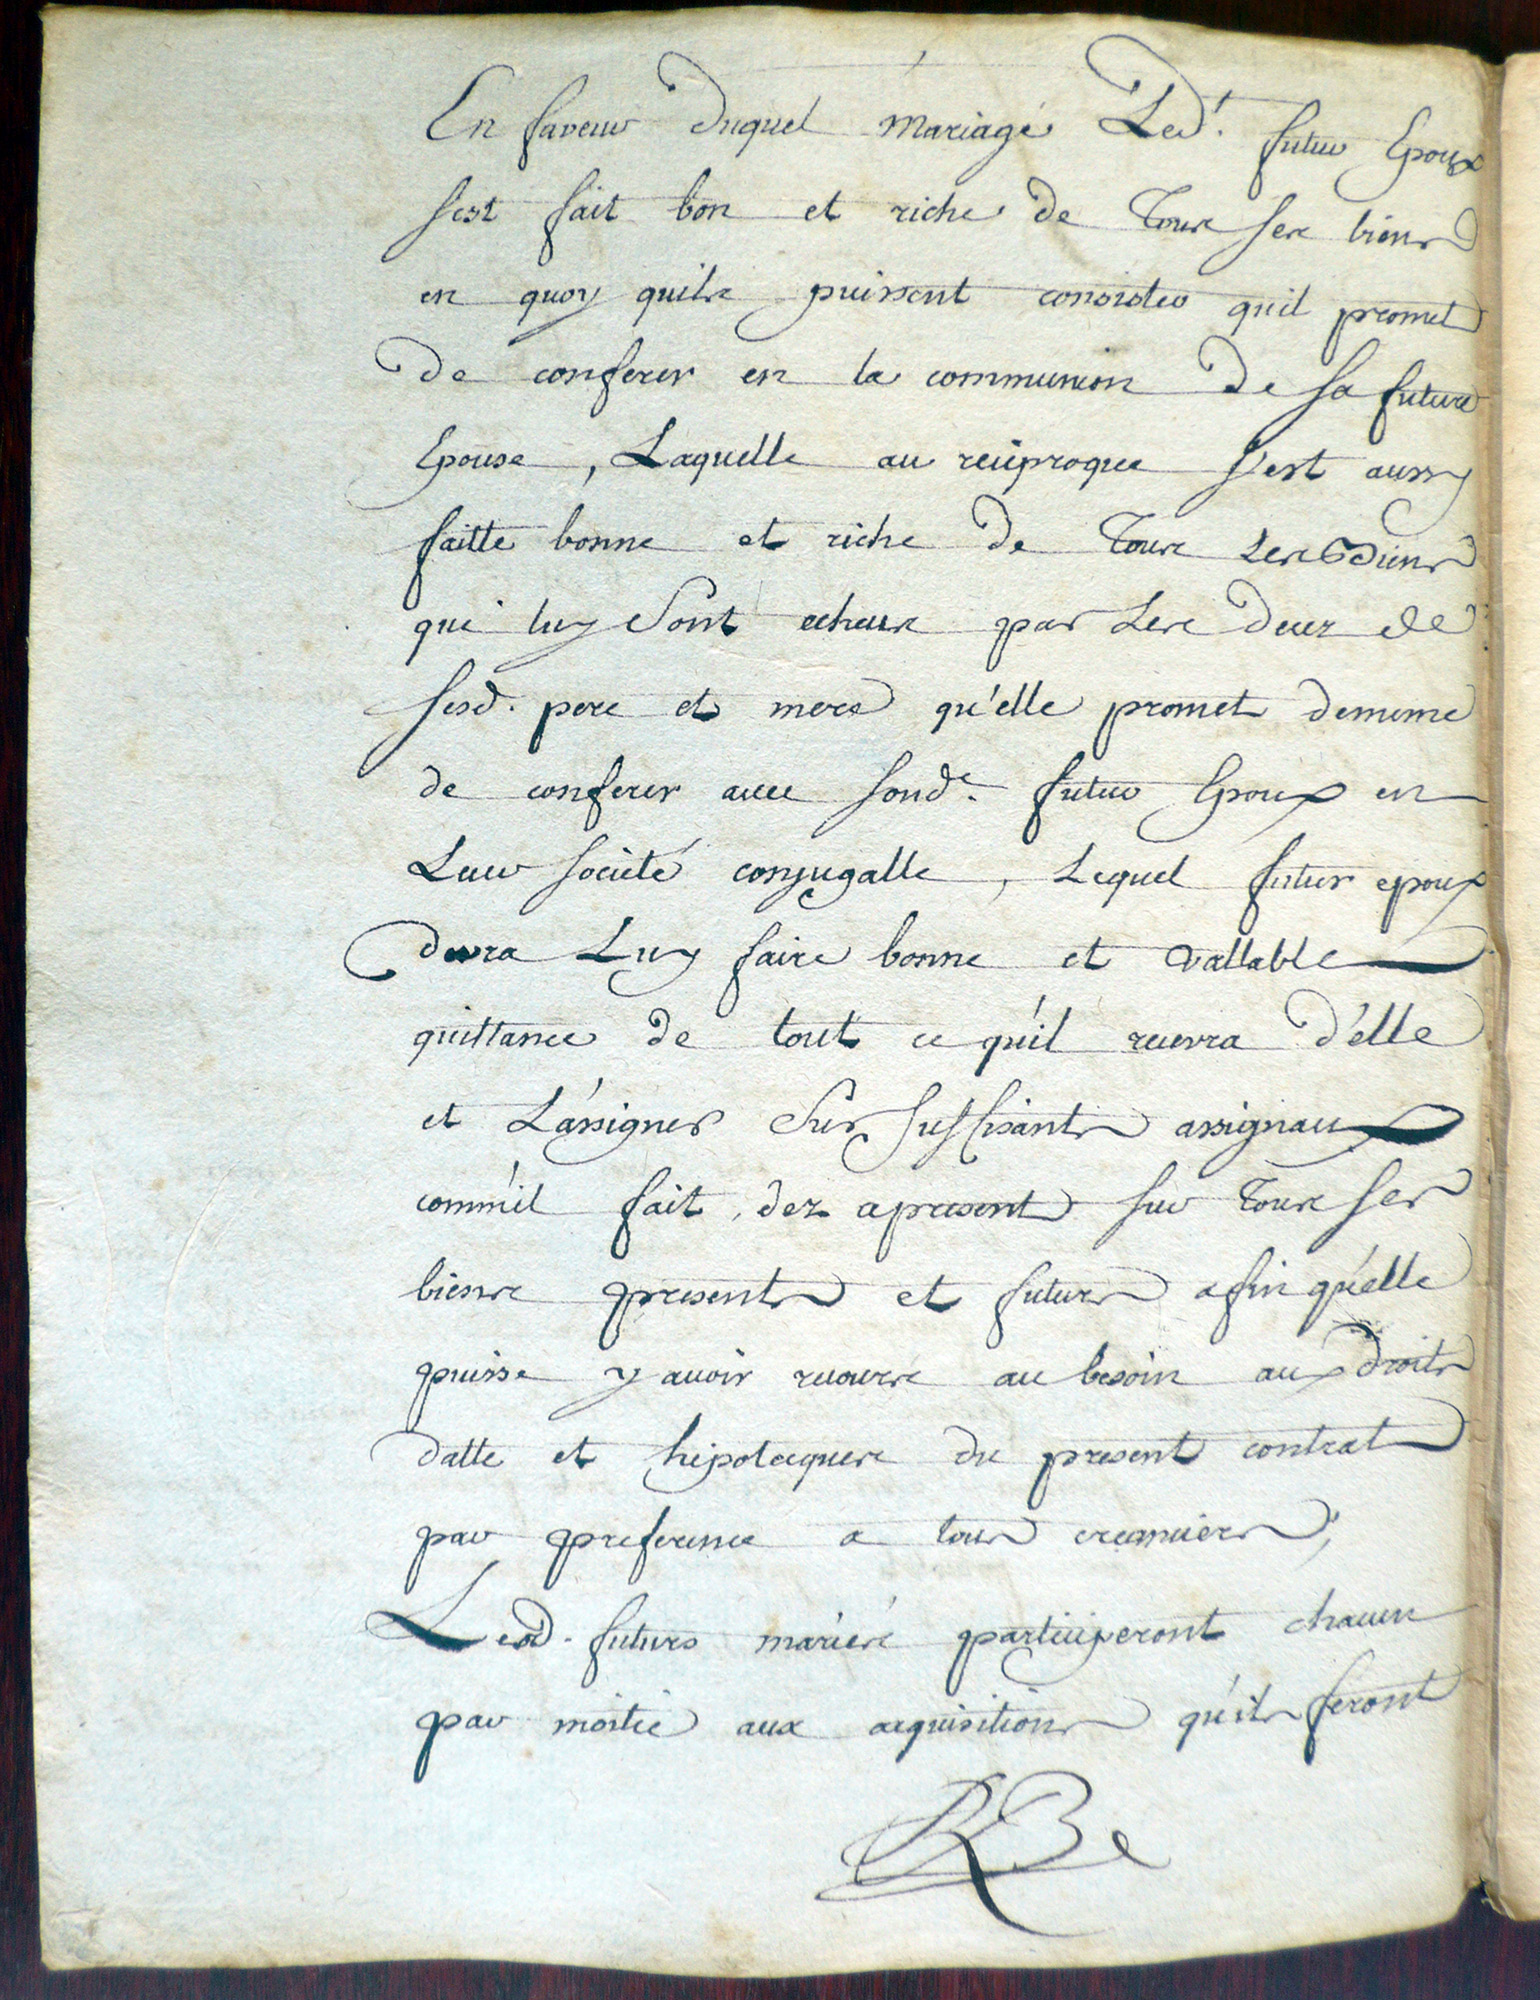 En faveur duquel mariage Led.t futur Epoux
sest fait bon et riche de Tous ses biens
en quoy quils puissent consister quil promet
de conferer en la communion de sa future
Epouse, Laquelle au reciproque s'est aussy
faitte bonne et riche de Tous Les Biens
qui luy Sont echeus par Les deces de
sesd. pere et mere qu'elle promet dememe
de conferer avec sond.t futur Epoux en
Leur société conjugalle, Lequel futur epoux
devra Luy faire bonne et vallable
quittance de tout ce qu'il recevra d'elle
et L'assigner Sur suffisants assignaux
comm'il fait, dez apresent sur Tous ses
biens presents et futurs afin qu'elle
puisse y avoir recours au besoin aux droits
datte et hipoteques du present contrat
par preference a tous creanciers,
Lesd. futurs mariés participeront chacun
par moitié aux acquisitions qu'ils feront